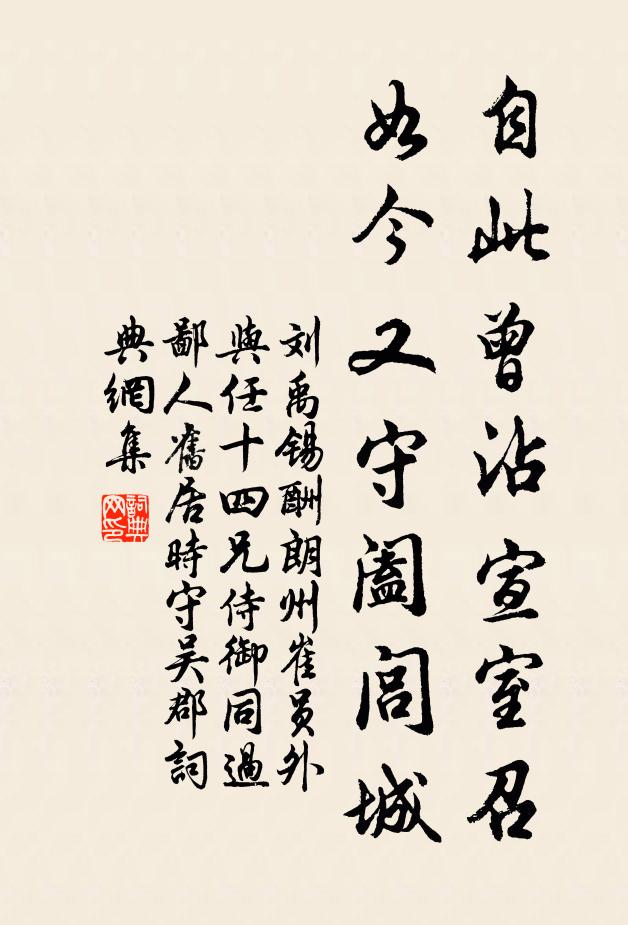 自此曾沾宣室召
如今又守阖闾城
刘禹锡酬朗州崔员外
與任十四兄侍御同過
鄙人舊居時守吴郡詞
典網集
詞典網印